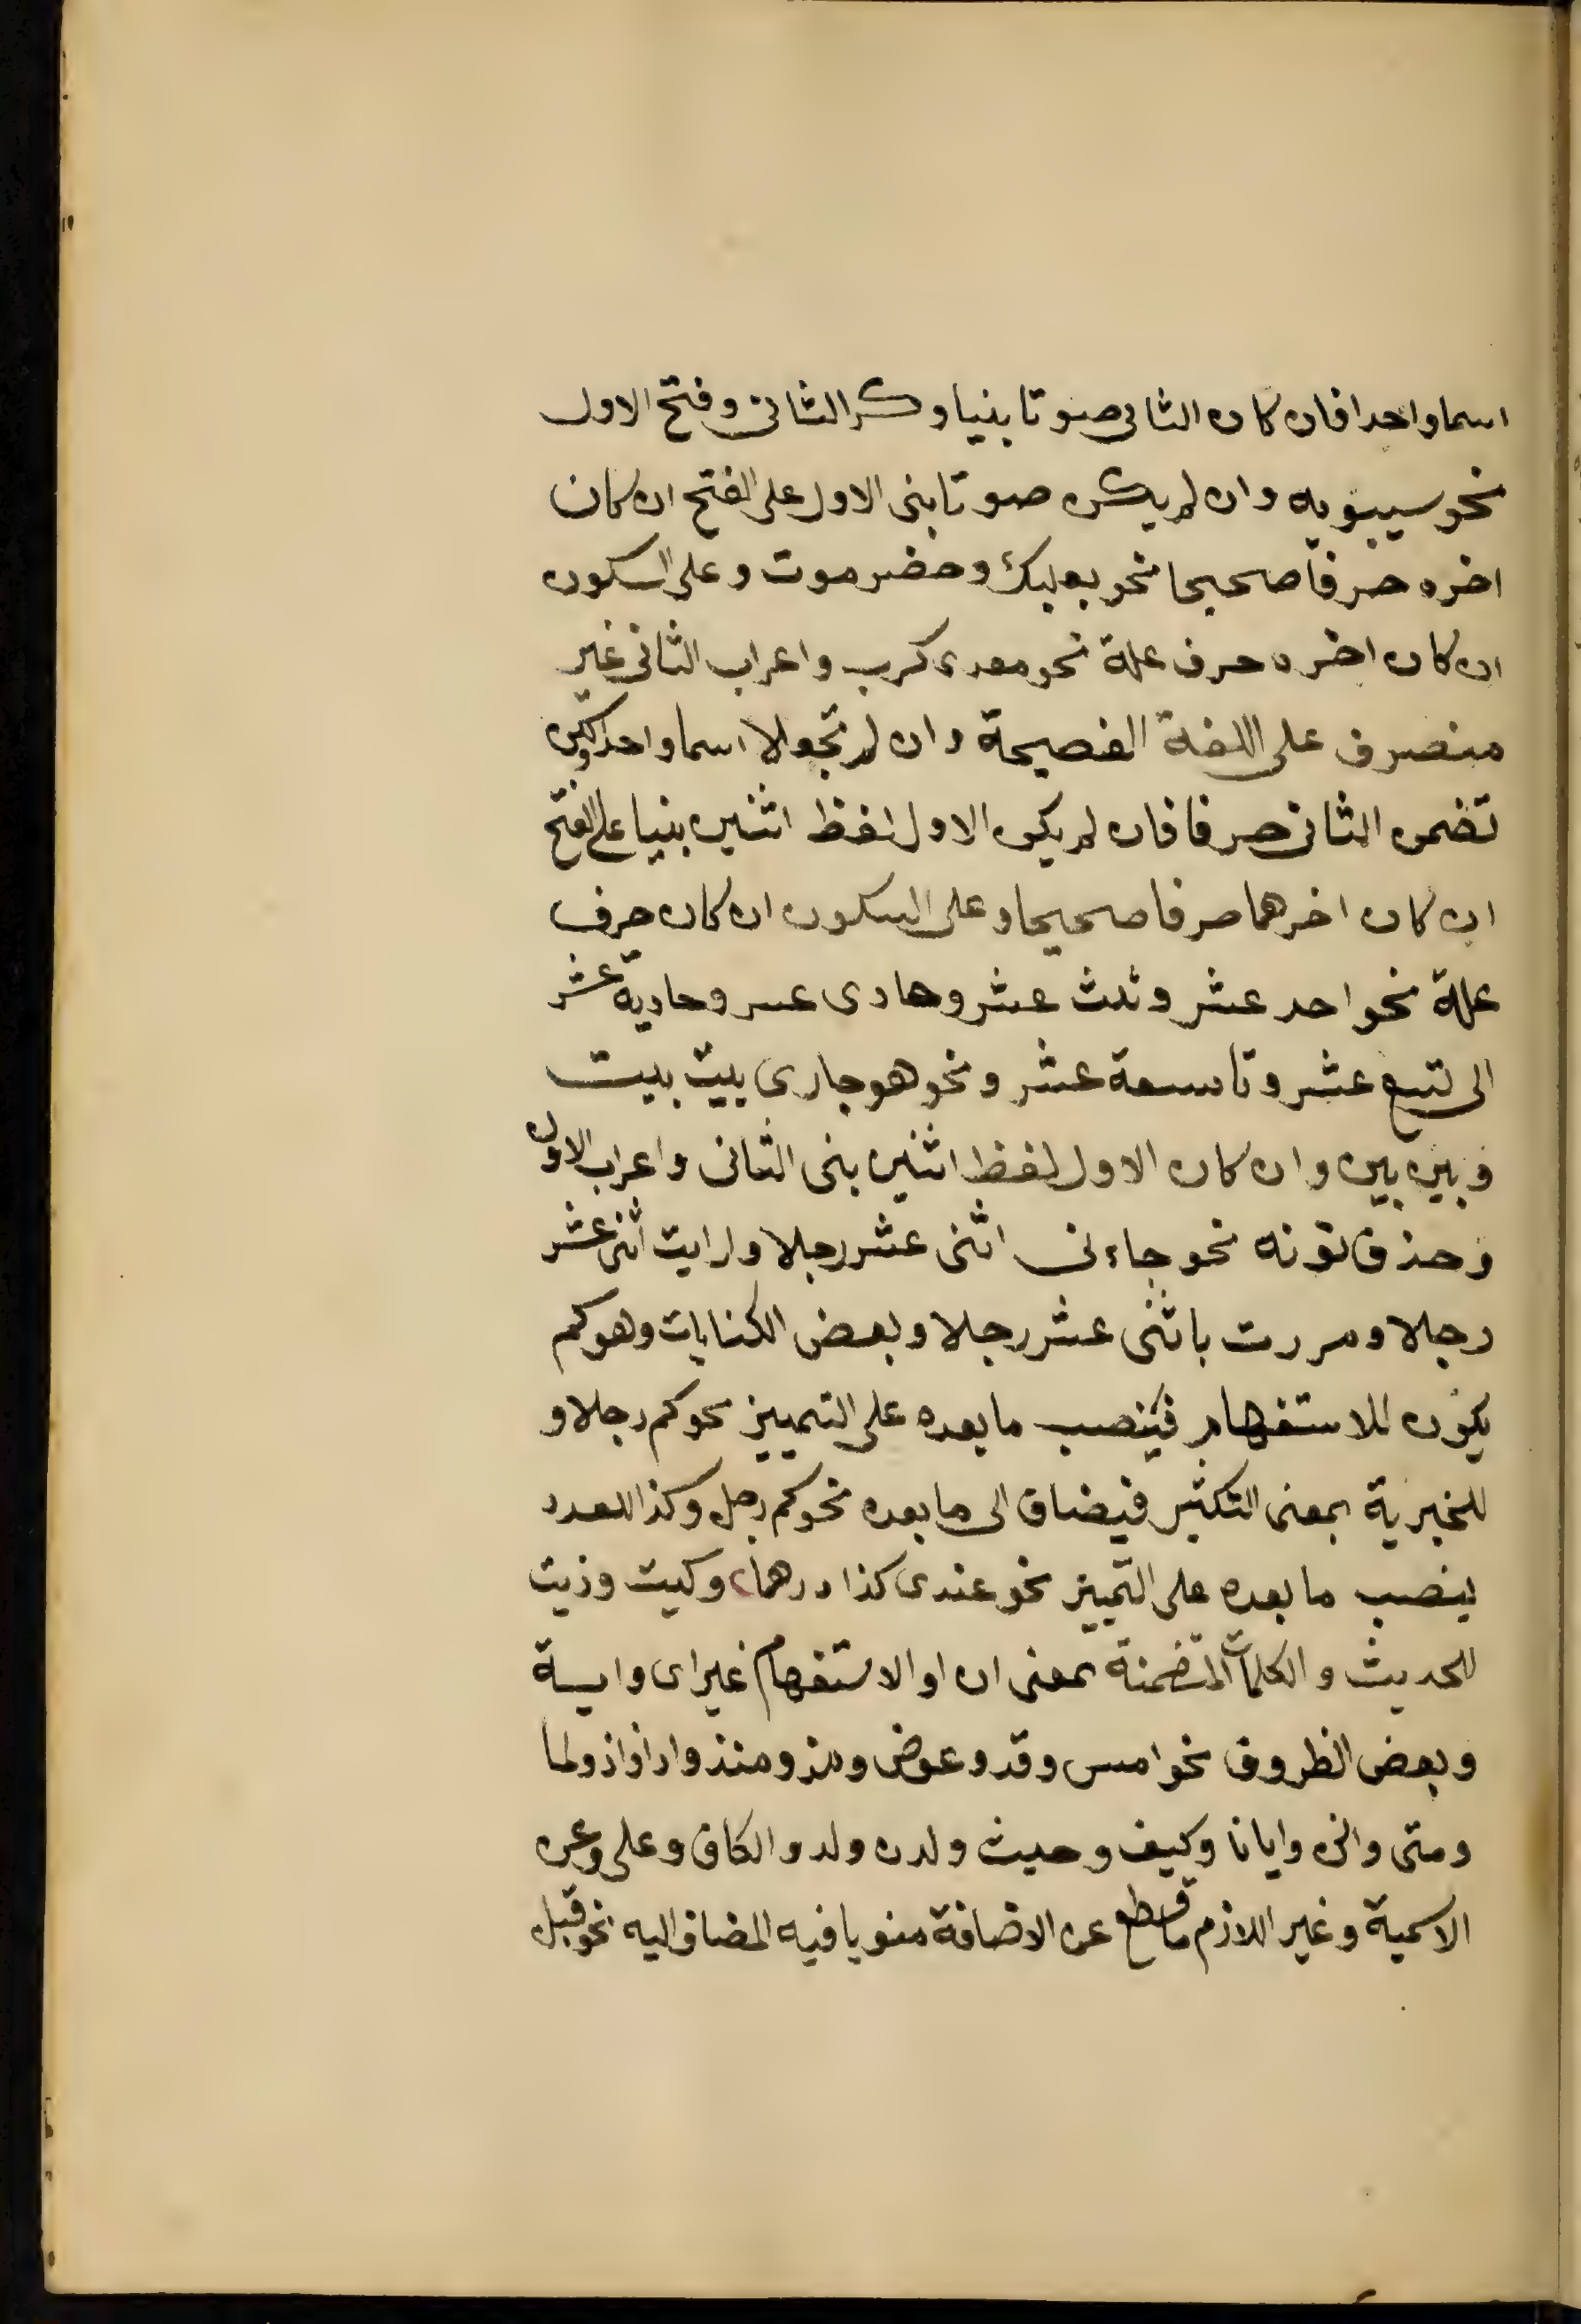 اسما واحدا فان كان الثانى صوتا بنيا وكسر الثانى وفتح الاول
نحو سيبويه وان لم يكن صوتا بنى الاول على الفتح ان كان
اخره حرفا صحيحا نحو بعلبك وحضرموت وعلى السكون
ان كان اخره حرف علة نحو معدى كرب واعراب الثانى غير
منصرف على اللغة الفصيحة وان لم تجعلا اسما واحدا ولكن
تضمن الثانى حرفا فان لم يكن الاول لفظ اثنين بنيا على الفتح
ان كان اخرهما حرفا صحيحا وعلى السكون ان كان حرف
علة نحو احد عشر وثلث عشر وحادى عشر وحادية عشر
الى تسع عشر وتاسعة عشر ونحو هو جارى بيت بيت
وبين بين وان كان الاول لفظ اثنين بنى الثانى واعراب الاول
وحذف نونه نحو جاءنى اثنى عشر رجلا ورايت اثنى عشر
رجلا ومررت باثنى عشر رجلا وبعض الكنايات وهو كم
يكون للاستفهام فينصب ما بعده على التمييز نحو كم رجلا و
للخبرية بمعنى التكثير فيضاف الى ما بعده نحو كم رجل وكذا للعدد
ينصب ما بعده على التمييز نحو عندى كذا درهما وكيت وذيت
للحديث والكلمات المتضمنة بمعنى ان او الاستفهام غير اى واية
وبعض الظروف نحو امس وقد وعوض ومذ ومنذ واذا واذ ولما
ومتى وانى وايانا وكيف وحيث ولدن ولد والكاف وعلى وعن
الاسمية وغير اللازم ما قطع عن الاضافة منويا فيه المضاف اليه نحو قبل